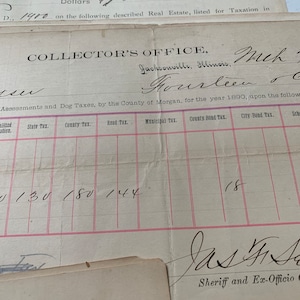 Dollars
D., 1900 on the following described Real Estate, listed for Taxation in
COLLECTOR'S OFFICE,
Jacksonville, Illinois, Mch
Fourteen &
Assessments and Dog Taxes, by the County of Morgan, for the year 1890, upon the follow
State Tax. County Tax. Road Tax. Municipal Tax. County Bond Tax. City Bond Tax.
130 180 144 18
Jas F
Sheriff and Ex-Officio